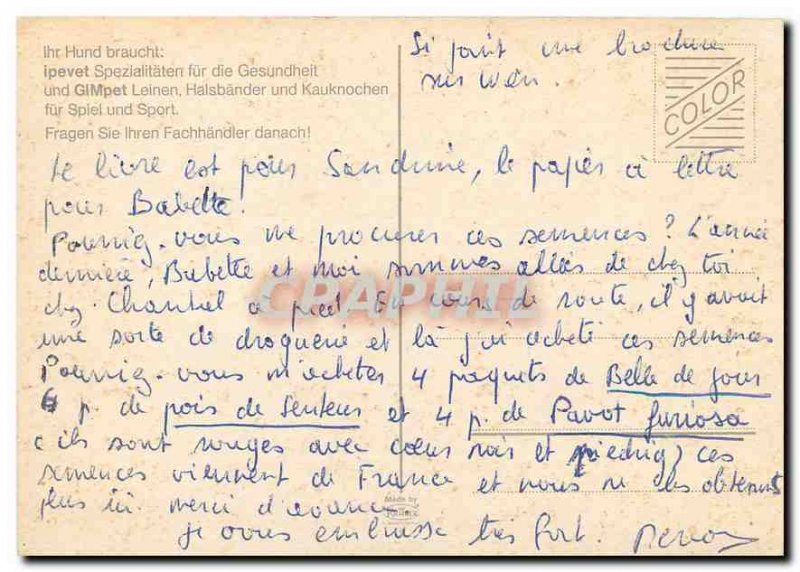 Ihr Hund braucht:
ipevet Spezialitäten für die Gesundheit
und GIMpet Leinen, Halsbänder und Kauknochen
für Spiel und Sport.
Fragen Sie Ihren Fachhändler danach!
Si joint une brochure
sur
COLOR
Le livre est pour Sandrine, le papier à lettre
pour Babette.
Pourriez-vous me procurer ces semences? L'année
dernière, Babette et moi sommes allées de chez toi
chez Chantal à pied. En cours de route, il y avait
une sorte de droguerie et là j'ai acheté ces semences
Pourriez-vous m'acheter 4 paquets de Belle de jour
6 p. de pois de senteur et 4 p. de Pavot furiosa
(ils sont rouges avec cœur noir et ) ces
semences viennent de France et nous ne les obtenons
plus ici. merci d'avance
Made by
je vous embrasse très fort.
CPAPHIL